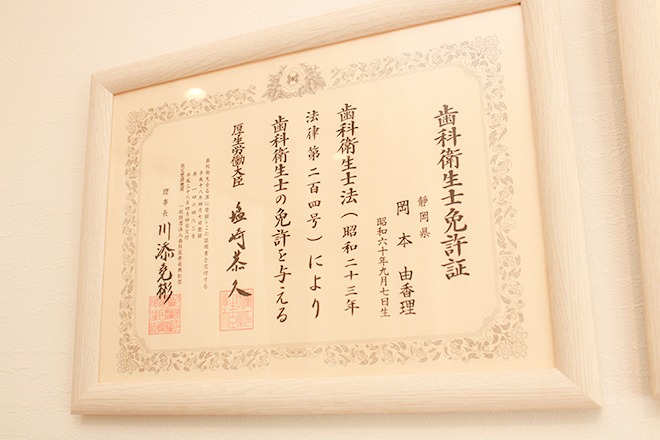 歯科衛生士免許証
静岡県
岡本由香理
昭和六十年九月七日生
歯科衛生士法(昭和二十三年
法律第二百四号)により
歯科衛生士の免許を与える
厚生労働大臣 塩崎恭久
理事長 川添堯彬